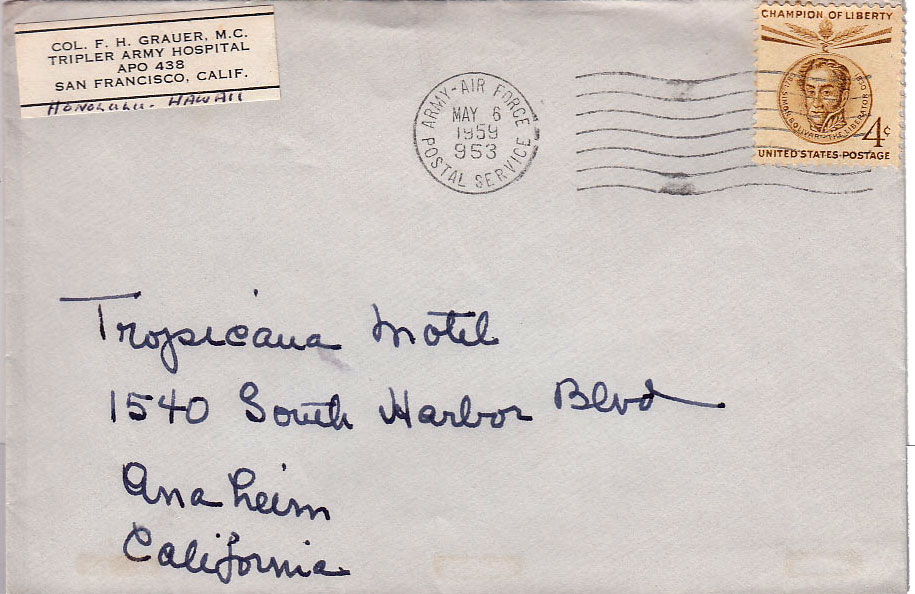 COL. F. H. GRAUER, M.C.
TRIPLER ARMY HOSPITAL
APO 438
SAN FRANCISCO, CALIF.
HONOLULU. HAWAII
ARMY-AIR FORCE
MAY 6
1959
953
POSTAL SERVICE
CHAMPION OF LIBERTY
SIMON BOLIVAR THE LIBERATOR
4¢
UNITED STATES POSTAGE
Tropicana Motel
1540 South Harbor Blvd
Anaheim
California